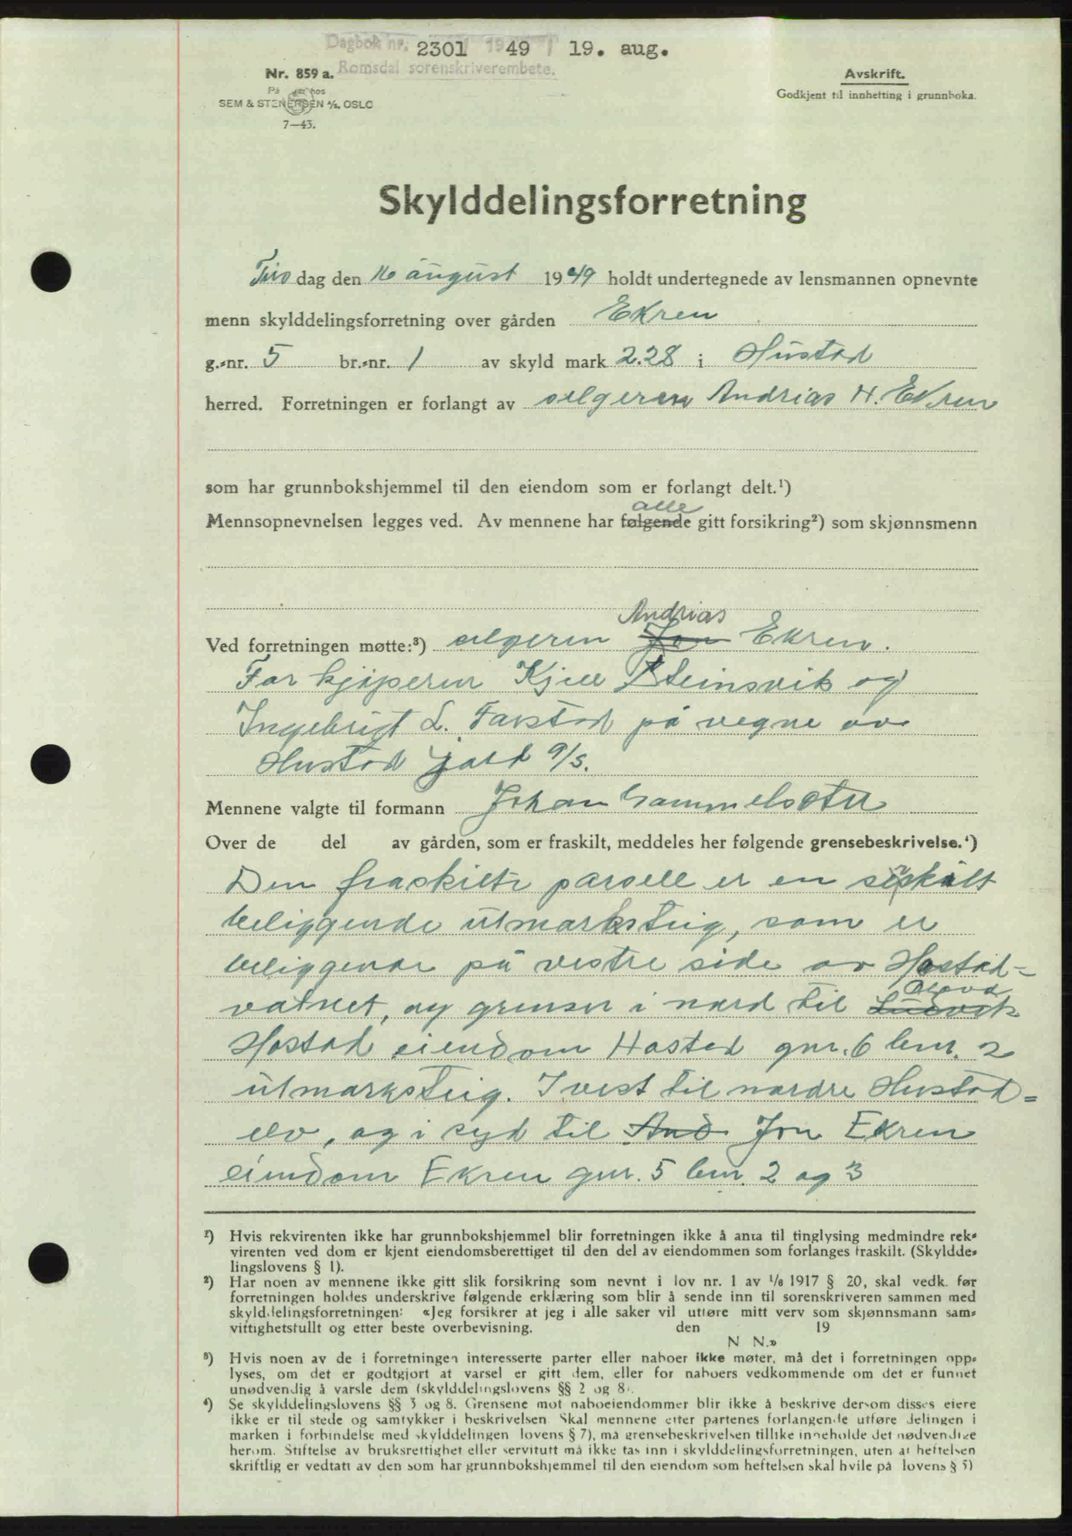 Dagbok nr. 2301 1949 19. aug.
Romsdal sorenskriverembete.
Nr. 859 a.
På hos
SEM & STENERSEN A/S, OSLO
7—43.
Avskrift.
Godkjent til innhefting i grunnboka.
Skylddelingsforretning
Tirsdag den 16 august 1949 holdt undertegnede av lensmannen opnevnte
menn skylddelingsforretning over gården Ekren
g.-nr. 5 br.-nr. 1 av skyld mark 2.28 i Hustad
herred. Forretningen er forlangt av selgeren Andrias H. Ekren
som har grunnbokshjemmel til den eiendom som er forlangt delt.¹)
alle
Mennsopnevnelsen legges ved. Av mennene har følgende gitt forsikring²) som skjønnsmenn
Andrias
Ved forretningen møtte:³) selgeren Jon Ekren.
For kjøperen Kjell Steinsvik og
Ingebrigt L. Farstad på vegne av
Hustad Jald
Mennene valgte til formann Johan Gammelsæter
Over de del av gården, som er fraskilt, meddeles her følgende grensebeskrivelse.⁴)
Den fraskilte parsell er en særskilt
beliggende utmarksteig, som er
beliggende på vestre side av Hostad-
Olava
vatnet, og grenser i nord til Ludvik
Hostad eiendom Hostad gnr. 6 bnr. 2
utmarksteig. I vest til nordre Hustad-
elv, og i syd til And Jon Ekren
eiendom Ekren gnr. 5 bnr. 2 og 3
¹) Hvis rekvirenten ikke har grunnbokshjemmel blir forretningen ikke å anta til tinglysing medmindre rek-
virenten ved dom er kjent eiendomsberettiget til den del av eiendommen som forlanges fraskilt. (Skyldde-
lingslovens § 1).
²) Har noen av mennene ikke gitt slik forsikring som nevnt i lov nr. 1 av 1/6 1917 § 20, skal vedk. før
forretningen holdes underskrive følgende erklæring som blir å sende inn til sorenskriveren sammen med
skylddelingsforretningen: «Jeg forsikrer at jeg i alle saker vil utføre mitt verv som skjønnsmann sam-
vittighetsfullt og etter beste overbevisning. den 19
N N.»
³) Hvis noen av de i forretningen interesserte parter eller naboer ikke møter, må det i forretningen opp-
lyses, om det er godtgjort at varsel er gitt dem, eller for naboers vedkommende om det er funnet
unødvendig å varsle dem (skylddelingslovens §§ 2 og 8).
⁴) Se skylddelingslovens §§ 3 og 8. Grensene mot naboeiendommer blir ikke å beskrive dersom disses eiere
ikke er til stede og samtykker i beskrivelsen. Skal mennene etter partenes forlangende utføre delingen i
marken i forbindelse med skylddelingen (lovens § 7), må grensebeskrivelsen tillike inneholde det nødvendige
herom. Stiftelse av bruksrettighet eller servitutt må ikke tas inn i skylddelingsforretningen, uten at heftelsen
skriftlig er vedtatt av den som har grunnbokshjemmel til den eiendom som heftelsen skal hvile på (lovens § 5)